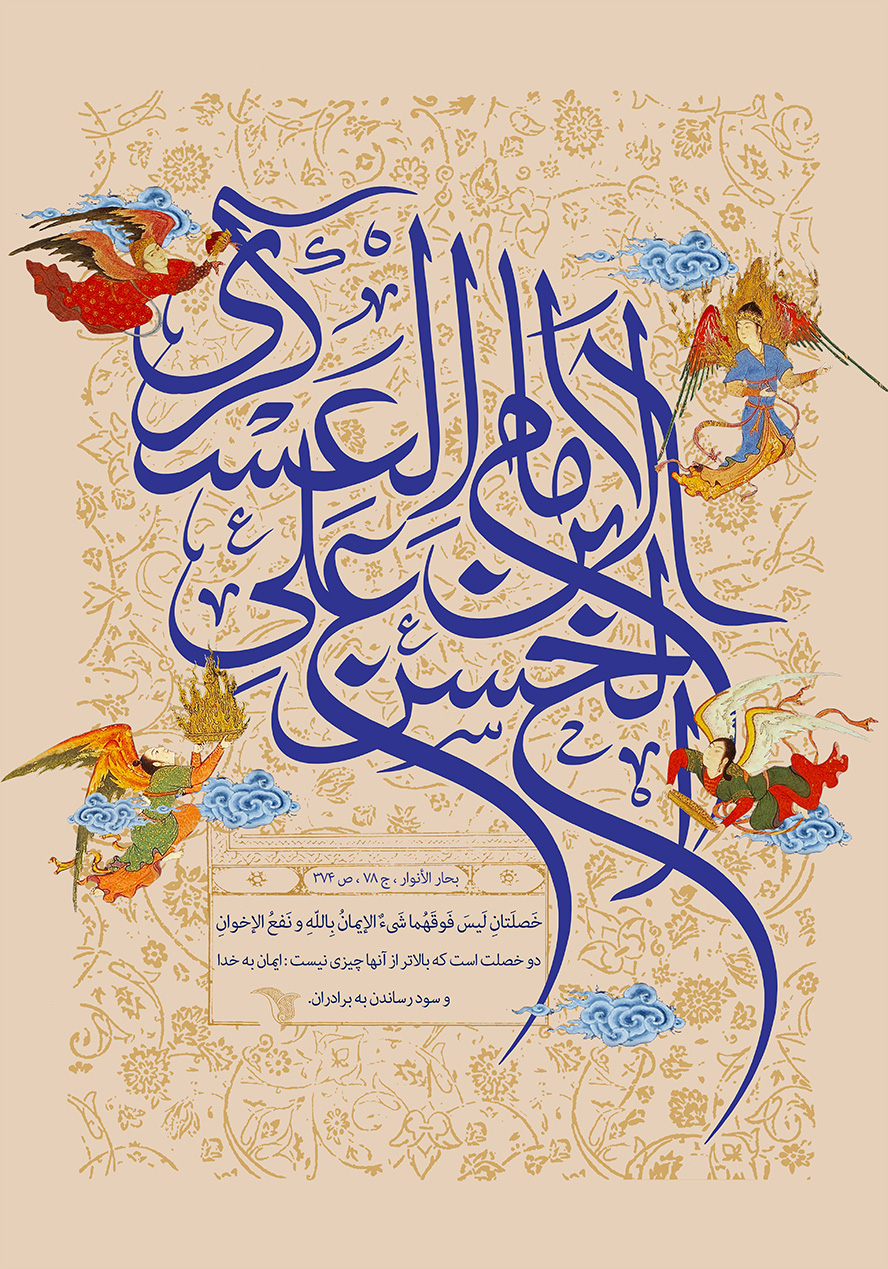 الامام الحسن بن علی العسکری
بحار الأنوار ، ج ۷۸ ، ص ۳۷۴
خَصلَتانِ لَیسَ فَوقَهُما شَیءٌ الإیمانُ بِاللّهِ و نَفعُ الإخوانِ
دو خصلت است که بالاتر از آنها چیزی نیست : ایمان به خدا
و سود رساندن به برادران.